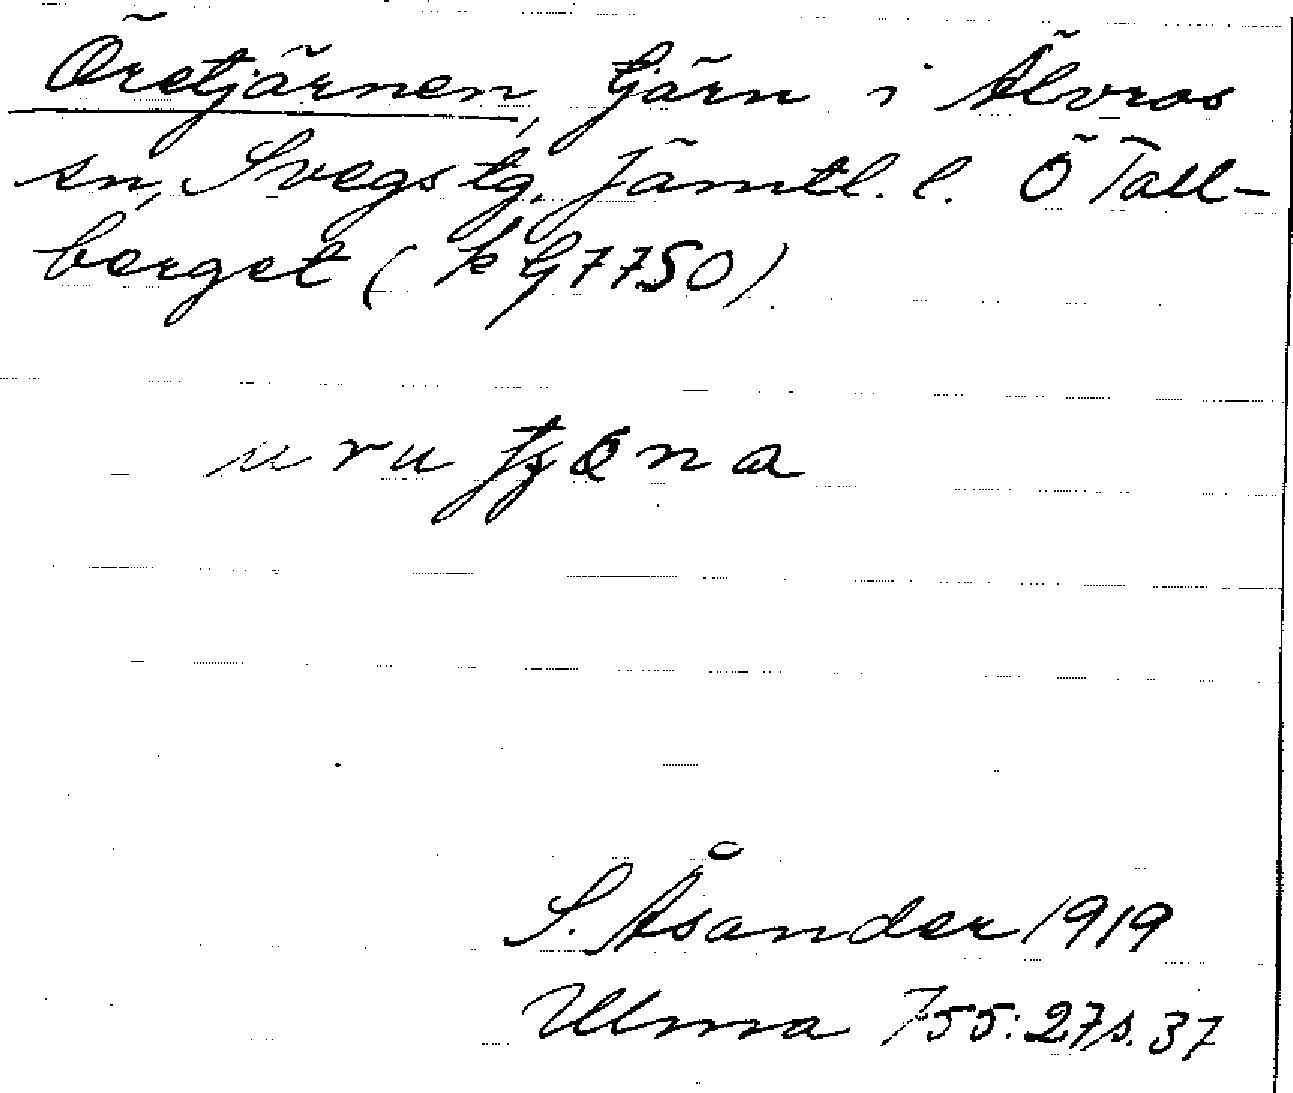 Öretjärnen, tjärn i Älvros
sn, Svegs tg. Jämtl. l. Ö Tall-
berget (k G7750)
uru tjøna
S. Åsander 1919
Ulma 755:27 s. 37